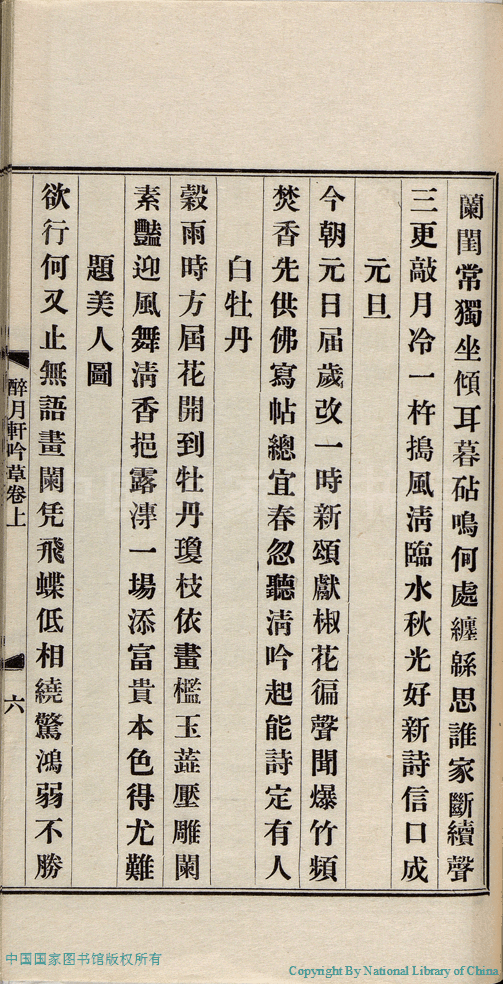 蘭閨常獨坐傾耳暮砧鳴何處纏緜思誰家斷續聲
三更敲月冷一杵搗風淸臨水秋光好新詩信口成
元旦
今朝元日届歲改一時新頌獻椒花徧聲聞爆竹頻
焚香先供佛寫帖總宜春忽聽淸吟起能詩定有人
白牡丹
穀雨時方屆花開到牡丹瓊枝依畫檻玉蕋壓雕闌
素豔迎風舞淸香挹露漙一場添富貴本色得尤難
題美人圖
欲行何又止無語畫闌凭飛蝶低相繞驚鴻弱不勝
醉月軒吟草卷上
六
中国国家图书馆版权所有
Copyright By National Library of China